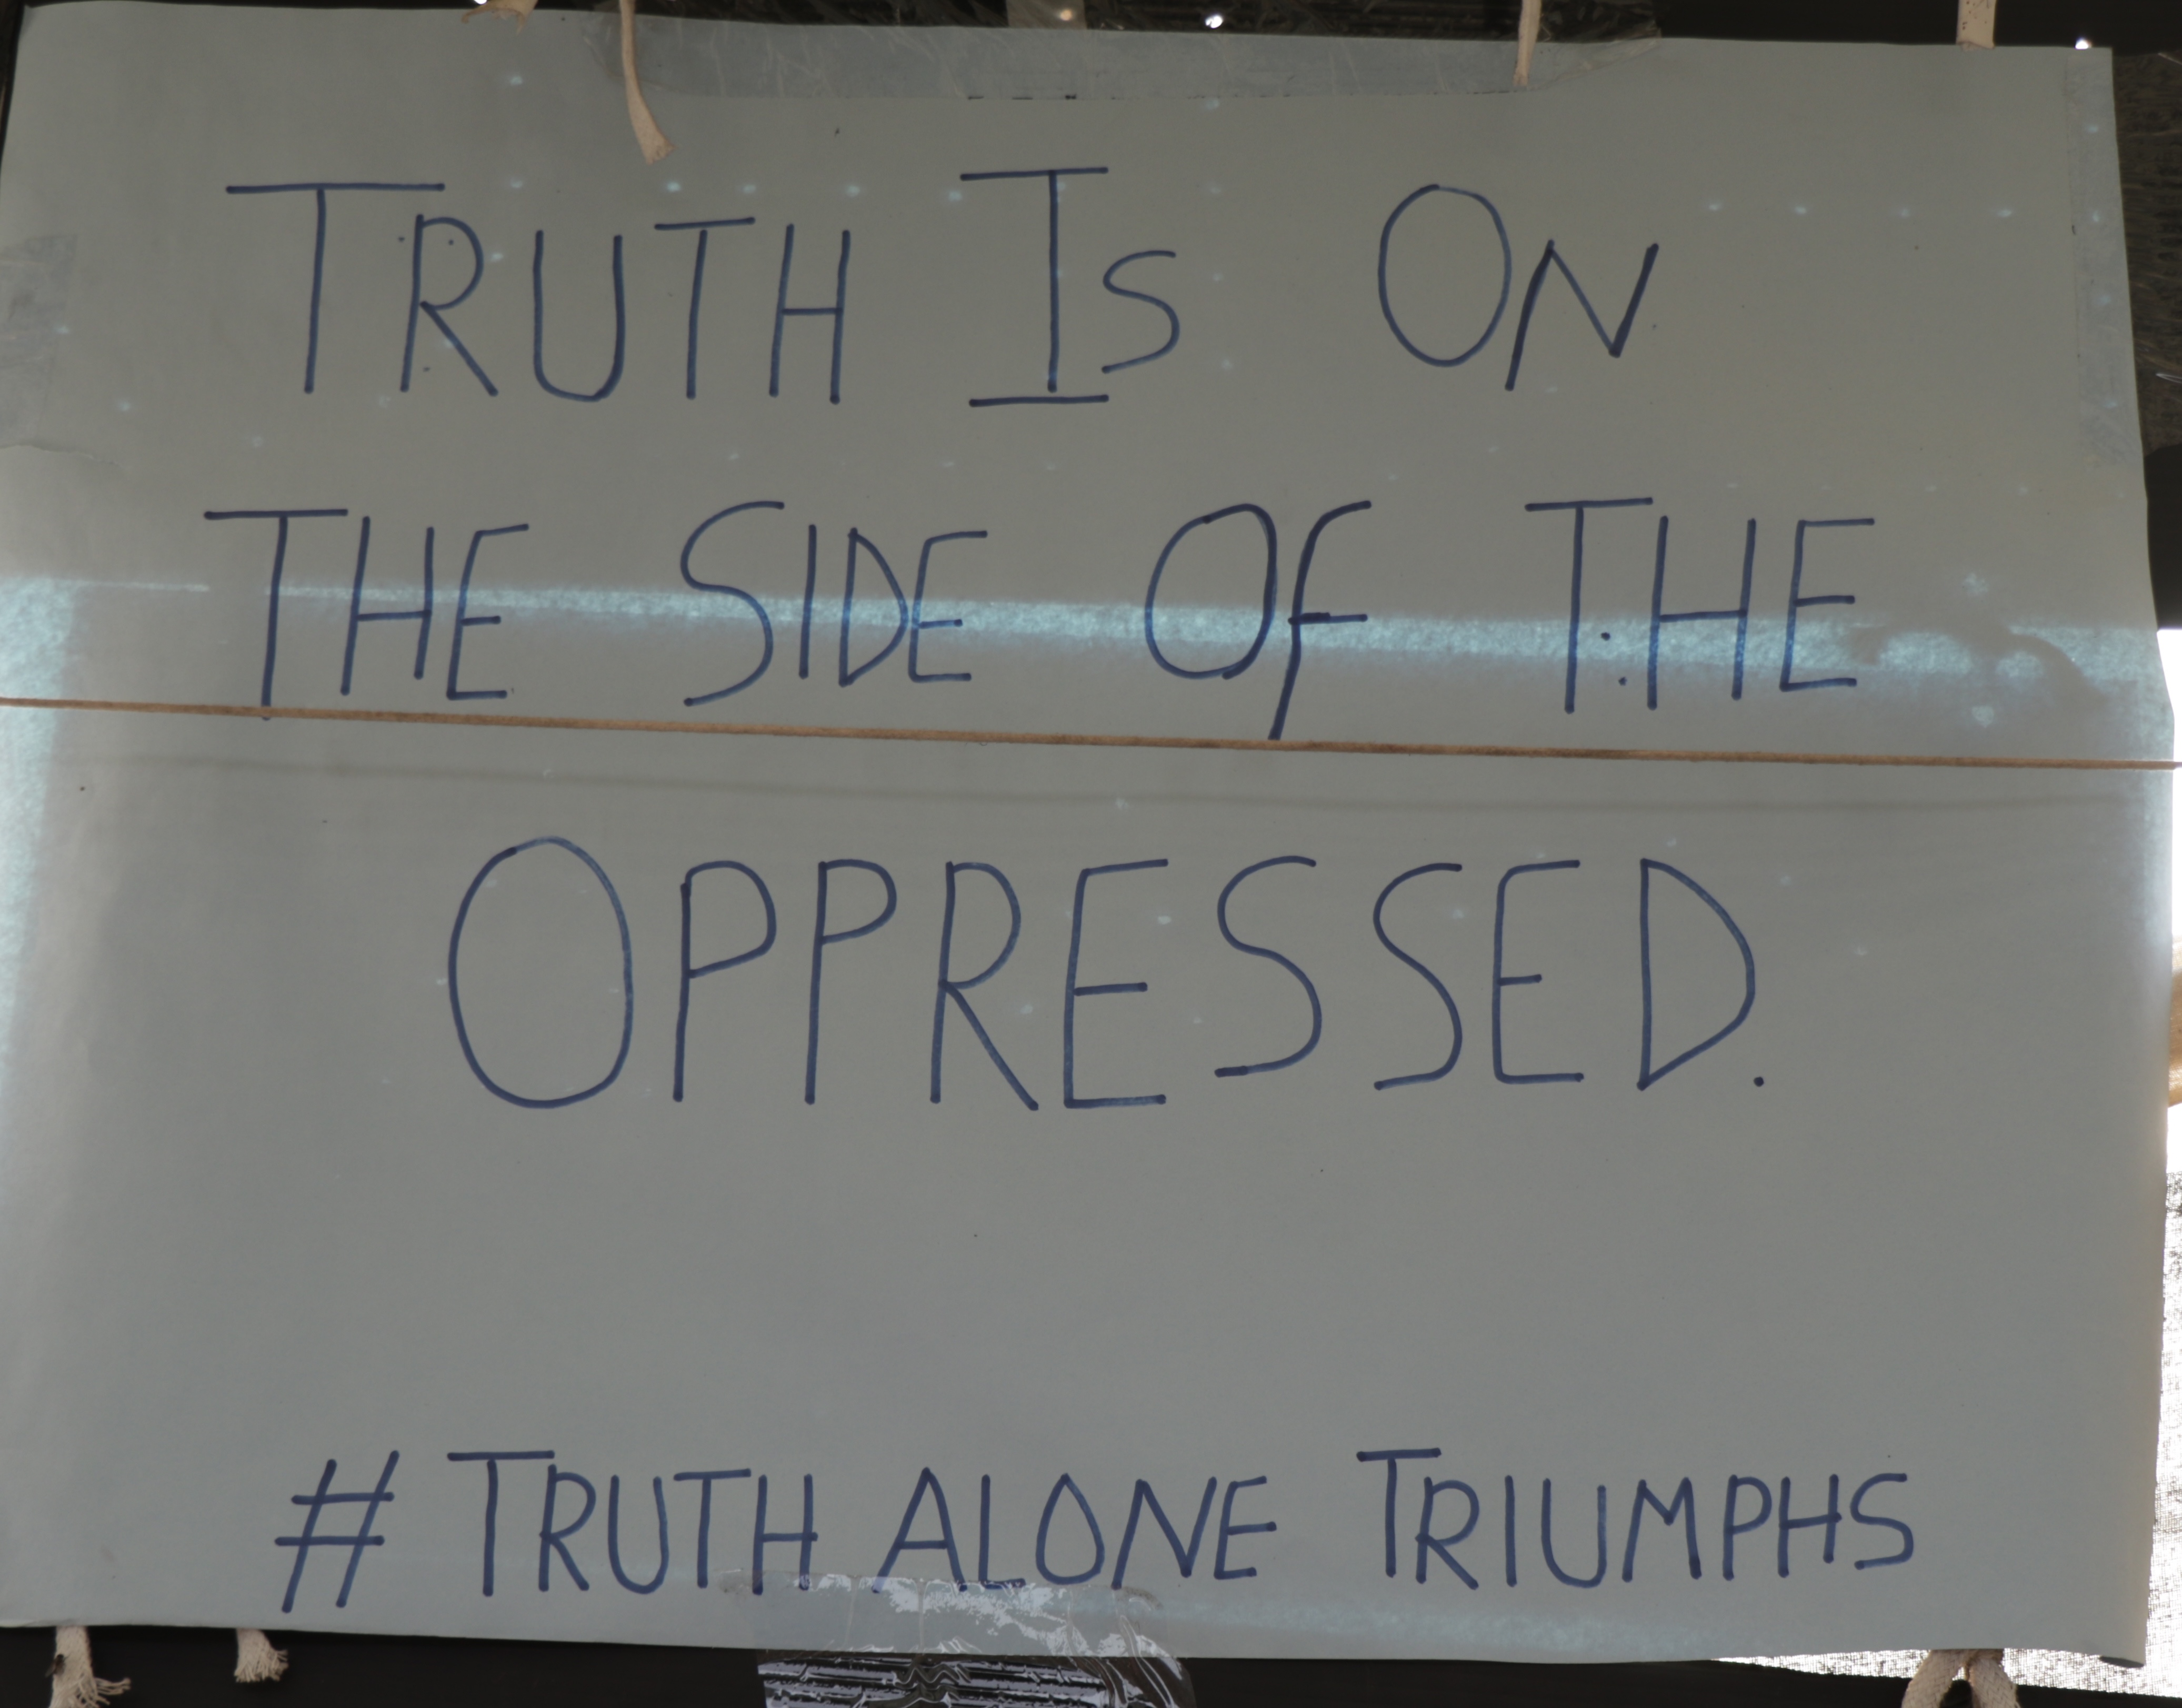 TRUTH IS ON
THE SIDE OF THE
OPPRESSED.
# TRUTH ALONE TRIUMPHS